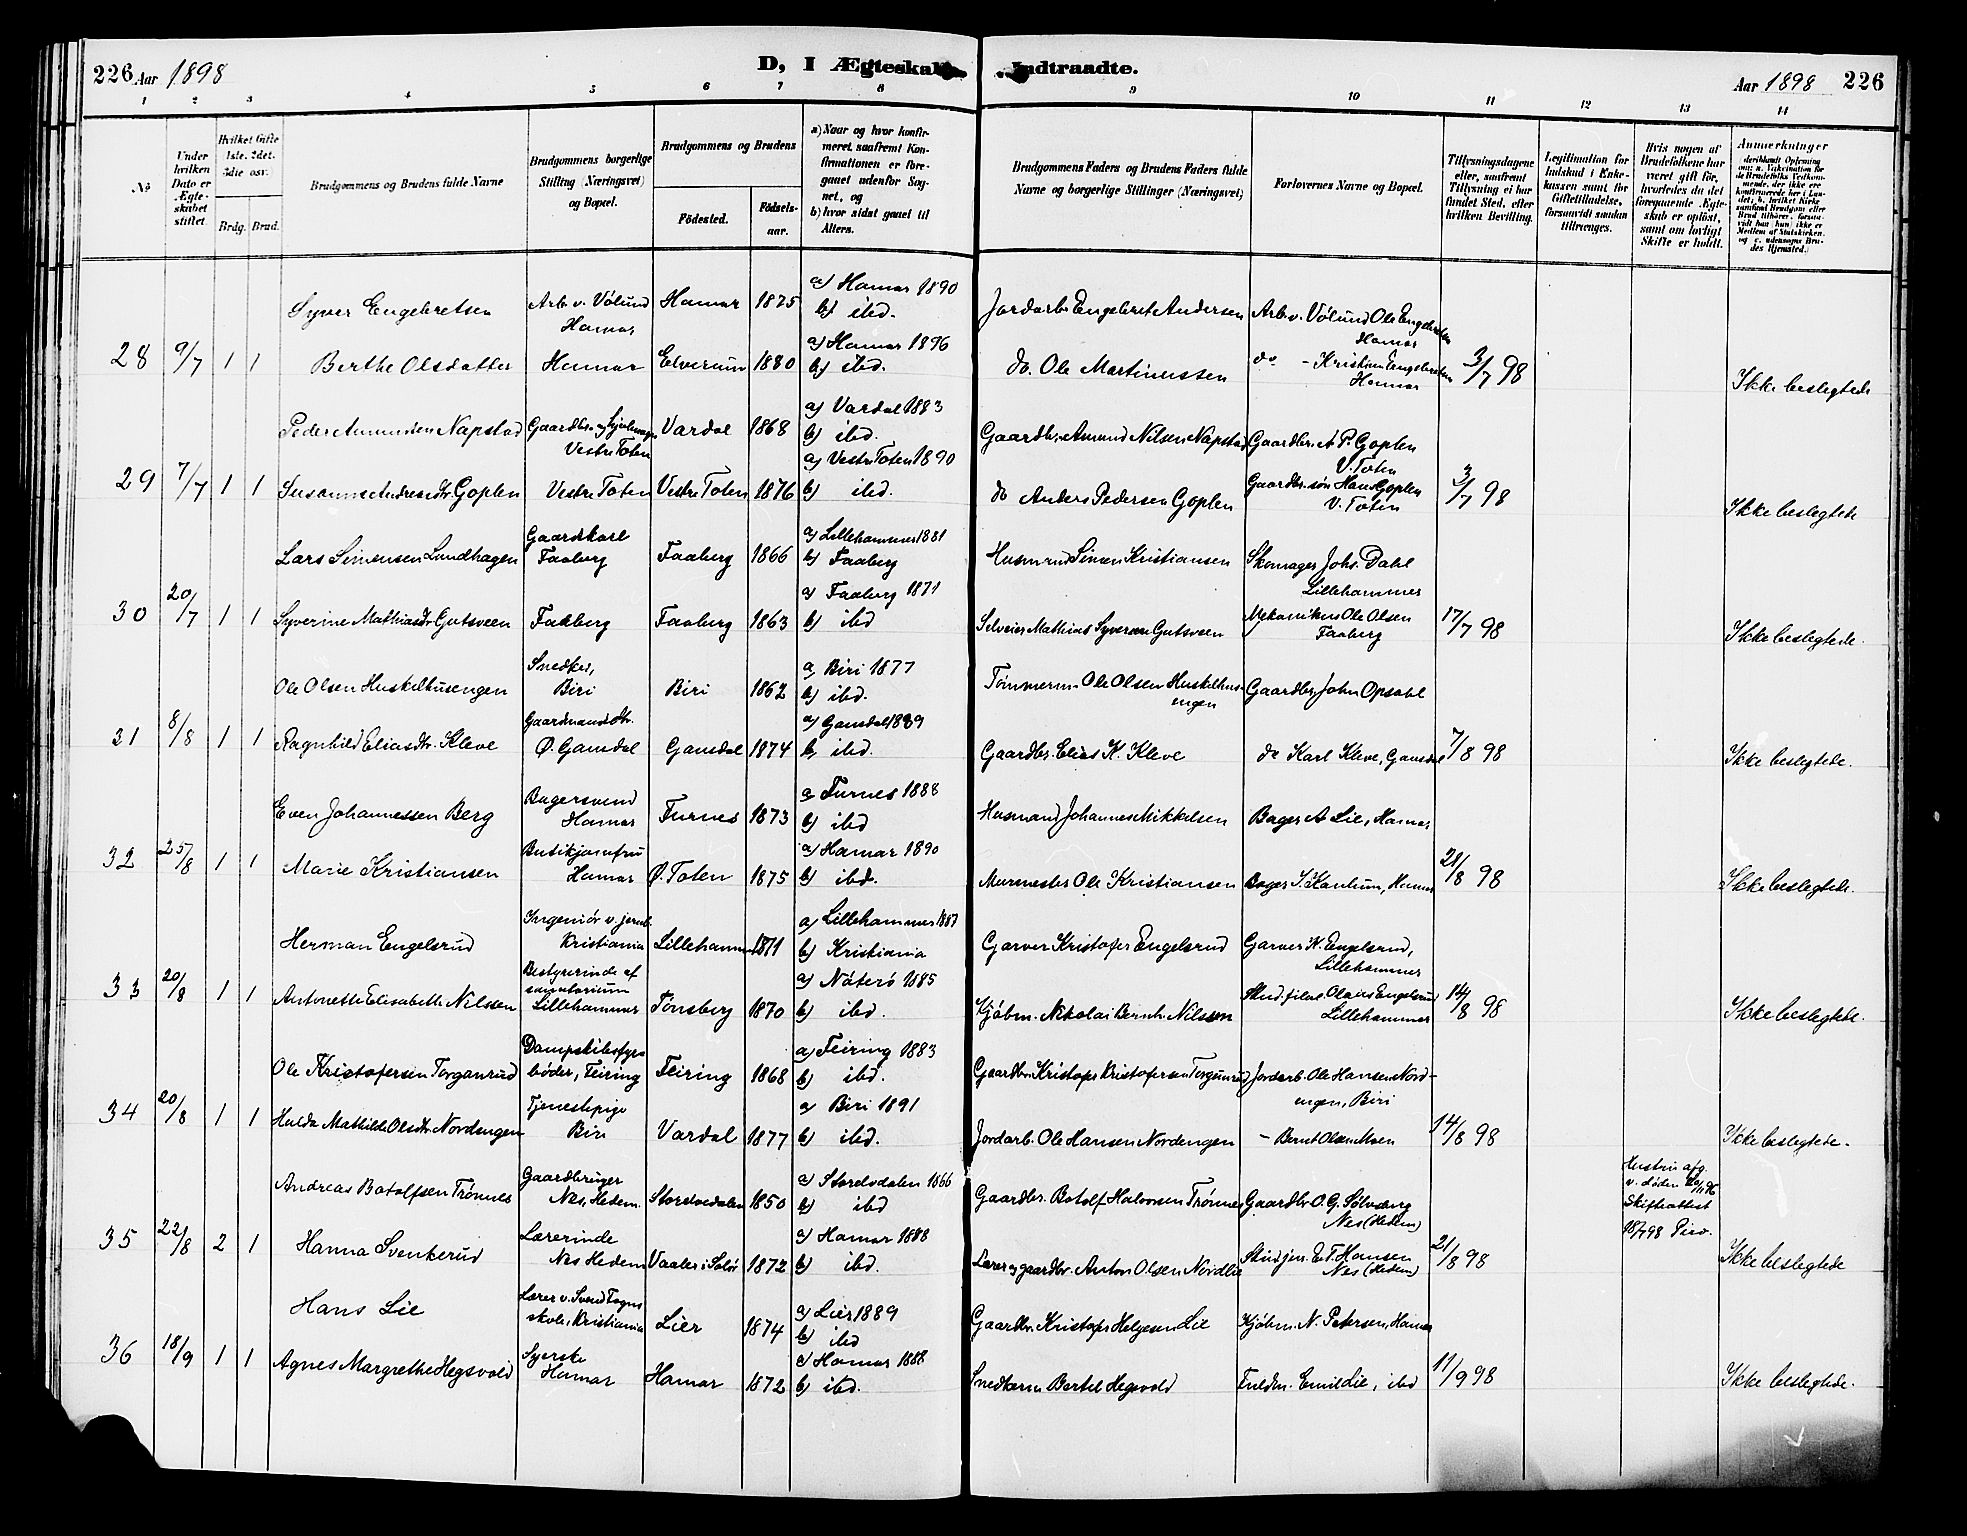 226 Aar 1898
D, I Ægteskab Indtraadte.
Aar 1898 226
1 2 3 4 5 6 7 8 9 10 11 12 13 14
№
Under hvilken Dato er Ægteskabet stiftet.
Hvilket Gifte 1ste. 2det. 3die osv.
Brdg. Brud.
Brudgommens og Brudens fulde Navne
Brudgommens borgerlige Stilling (Næringsvei) og Bopæl.
Brudgommens og Brudens
Fødested.
Fødselsaar.
a) Naar og hvor konfirmeret, saafremt Konfirmationen er foregaaet udenfor Sognet, og
b) hvor sidst gaaet til Alters.
Brudgommens Faders og Brudens Faders fulde Navne og borgerlige Stillinger (Næringsvei)
Forlovernes Navne og Bopæl.
Tillysningsdagene eller, saafremt Tillysning ei har fundet Sted, efter hvilken Bevilling.
Legitimation for Indskud i Enkekassen samt for Giftetilladelse, forsaavidt saadan tiltrænges.
Hvis nogen af Brudefolkene har været gift før, hvorledes da det foregaaende Ægteskab er opløst, samt om lovligt Skifte er holdt.
Anmærkninger
Syver Engebretsen Arb. v. Vølund Hamar Hamar 1875 a) Hamar 1890 b) ibd. Jordarb. Engebret Andersen Arb. v. Vølund Ole Engebretsen Hamar
28 9/7 1 1 Berthe Olsdatter Hamar Elverum 1880 a) Hamar 1896 b) ibd. do. Ole Martinussen do - Kristian Engebretsen Hamar 3/7 98 Ikke beslegtede
Peder Amundsen Napstad Gaardbr. og Vestre Toten Vardal 1868 a) Vardal 1883 b) ibd. Gaardbr. Amund Nilsen Napstad Gaardbr. A. P. Goplen V. Toten
29 7/7 1 1 Susanne Andreasdtr Goplen Vestre Toten Vestre Toten 1876 a) Vestre Toten 1890 b) ibd. do Anders Pedersen Goplen Gaardbr. søn Hans Goplen V. Toten 3/7 98 Ikke beslegtede
Lars Simensen Lundhagen Gaardkarl Faaberg Faaberg 1866 a) Lillehammer 1881 b) Faaberg Husmand Simen Kristiansen Skomager Johs. Dahl Lillehammer
30 20/7 1 1 Syverine Mathiasdtr Gutsveen Faaberg Faaberg 1863 a) Faaberg 1871 b) ibd Selveier Mathias Syversen Gutsveen Mekanikus Ole Olsen Faaberg 17/7 98 Ikke beslegtede.
Ole Olsen Huskelhusengen Snedker, Biri Biri 1862 a) Biri 1877 b) ibd. Tømmerm. Ole Olsen Huskelhusengen Gaardbr. John Opsahl
31 8/8 1 1 Ragnhild Eliasdtr. Kleve Gaardmandsdtr. Ø. Gausdal Gausdal 1874 a) Gausdal 1889 b) ibd. Gaardbr. Elias K. Kleve do Karl Kleve, Gausdal 7/8 98 Ikke beslegtede.
Even Johannessen Berg Bagersvend Hamar Furnes 1873 a) Furnes 1888 b) ibd Husmand Johannes Mikkelsen Bager A Lie, Hamar
32 25/8 1 1 Marie Kristiansen Butikjomfru Hamar Ø. Toten 1875 a) Hamar 1890 b) ibd. Murmester Ole Kristiansen Bager, Hamar 21/8 98 Ikke beslegtede.
Herman Engelsrud Ingeniør v. jernb. Kristiania Lillehammer 1871 a) Lillehammer 1887 b) Kristiania Garver Kristofer Engelsrud Garver K. Engelsrud, Lillehammer
33 20/8 1 1 Antonette Elisabeth Nilssen Bestyrerinde af sanatorium Lillehammer Tønsberg 1870 a) Nøterø 1885 b) ibd. Kjøbm. Nikolai Bernh. Nilssen Stud. filol. Olaus Engelsrud Lillehammer 14/8 98 Ikke beslegtede.
Ole Kristofersen Torgunrud Dampskibsfyrbøder, Feiring Feiring 1868 a) Feiring 1883 b) ibd. Gaardbr. Kristofer Kristofersen Torgunrud Jordarb. Ole Hansen Nordengen, Biri
34 20/8 1 1 Hulda Mathilde Olsdtr. Nordengen Tjenestepige Biri Vardal 1877 a) Biri 1891 b) ibd. Jordarb. Ole Hansen Nordengen - Bernt Olsen Moen 14/8 98 Ikke beslegtede.
Andreas Botolfsen Trønnes Gaardbruger Nes, Hedem. Storelvedalen 1850 a) Storelvdalen 1866 b) ibd Gaardbr. Botolf Halvorsen Trønnes Gaardbr. O. G. Sølvsberg Nes (Hedem) Hustru afg. v. døden 20/1 96 Skifteattest 18/7 98
35 22/8 2 1 Hanna Svenkerud Lærerinde Nes Hedem Vaaler i Solør 1872 a) Hamar 1888 b) ibd. Lærer og gaardbr. Anton Olsen Nordlie Stud. jur. E. T. Hansen Nes (Hedem) 21/8 98 Ikke beslegtede
Hans Lie Lærer v. Svend Foyns skole, Kristiania Lier 1874 a) Lier 1889 b) ibd Gaardbr. Kristofer Helgesen Lie Kjøbm. N. Petersen, Hamar
36 18/9 1 1 Agnes Margrethe Hegsvold Syerske Hamar Hamar 1872 a) Hamar 1888 b) ibd. Snedkerm Bertel Hegsvold Fuldm. Emil Lie, ibd 11/9 98 Ikke beslegtede.